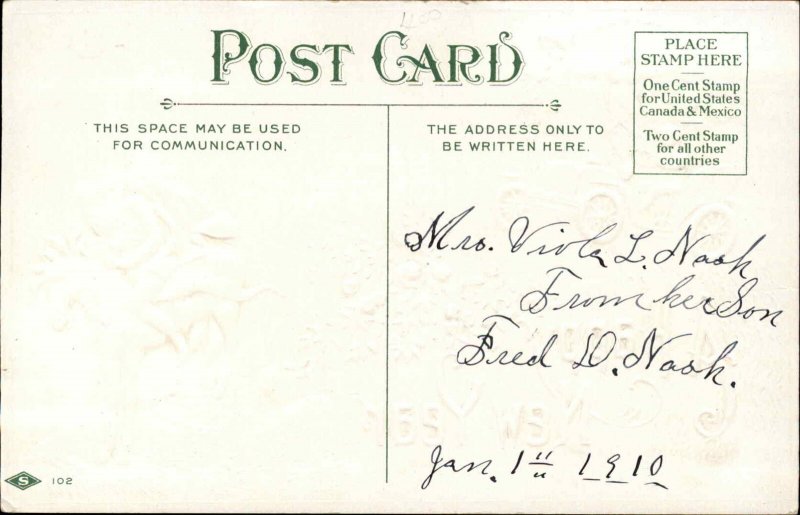 400
POST CARD
PLACE
STAMP HERE
One Cent Stamp
for United States
Canada & Mexico
Two Cent Stamp
for all other
countries
THIS SPACE MAY BE USED
FOR COMMUNICATION.
THE ADDRESS ONLY TO
BE WRITTEN HERE.
Mrs. Viola L. Nash
From her Son
Fred D. Nash.
Jan. 1" 1910
S 102